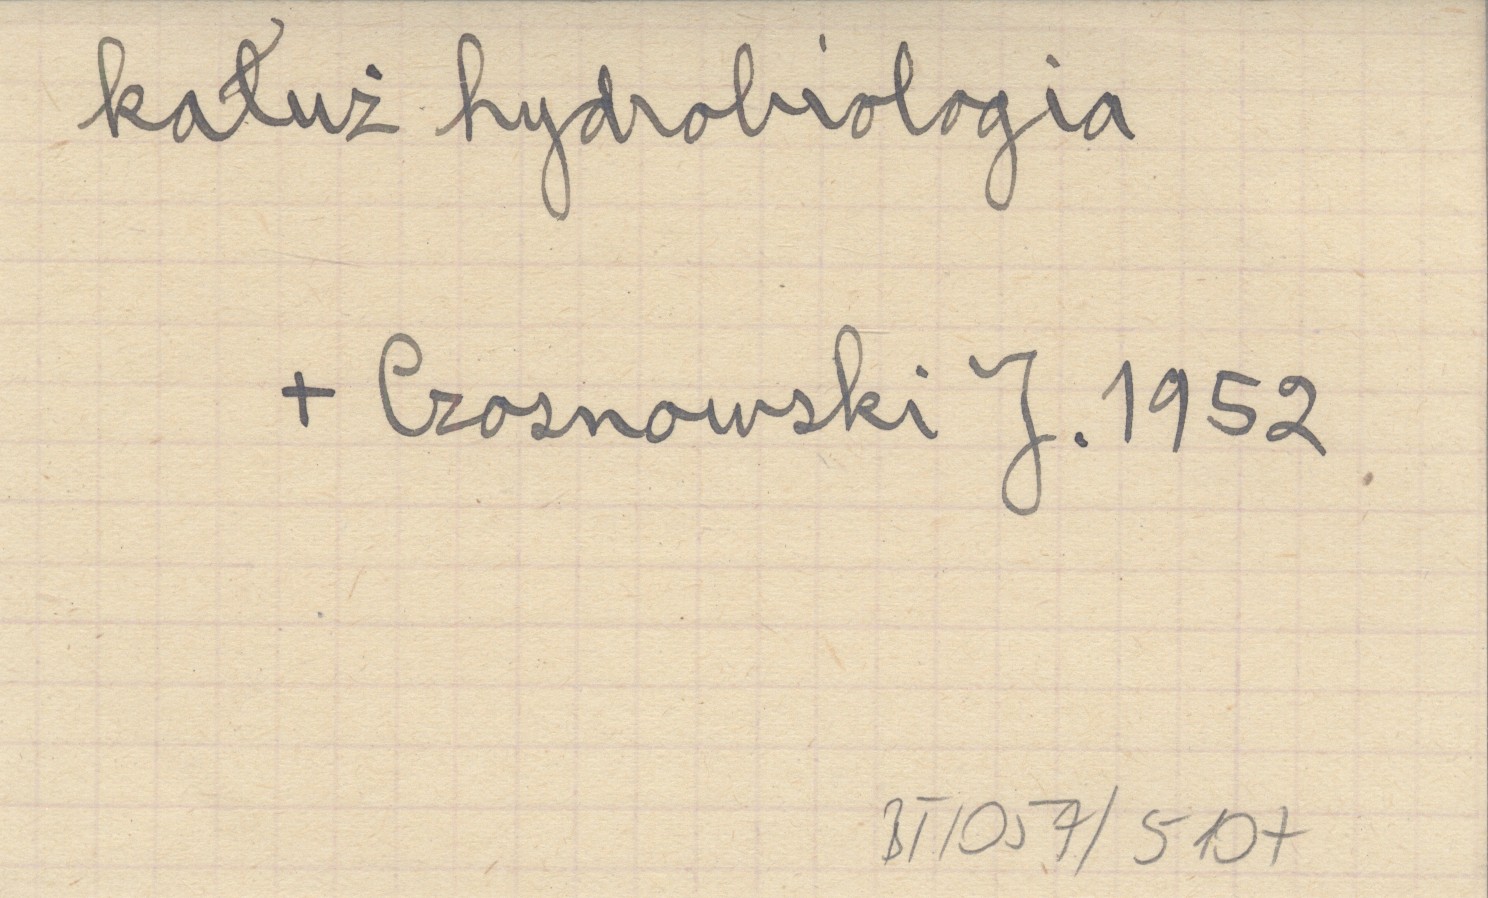 kałuż hydrobiologia
+ Czosnowski J. 1952
BT/057/5107